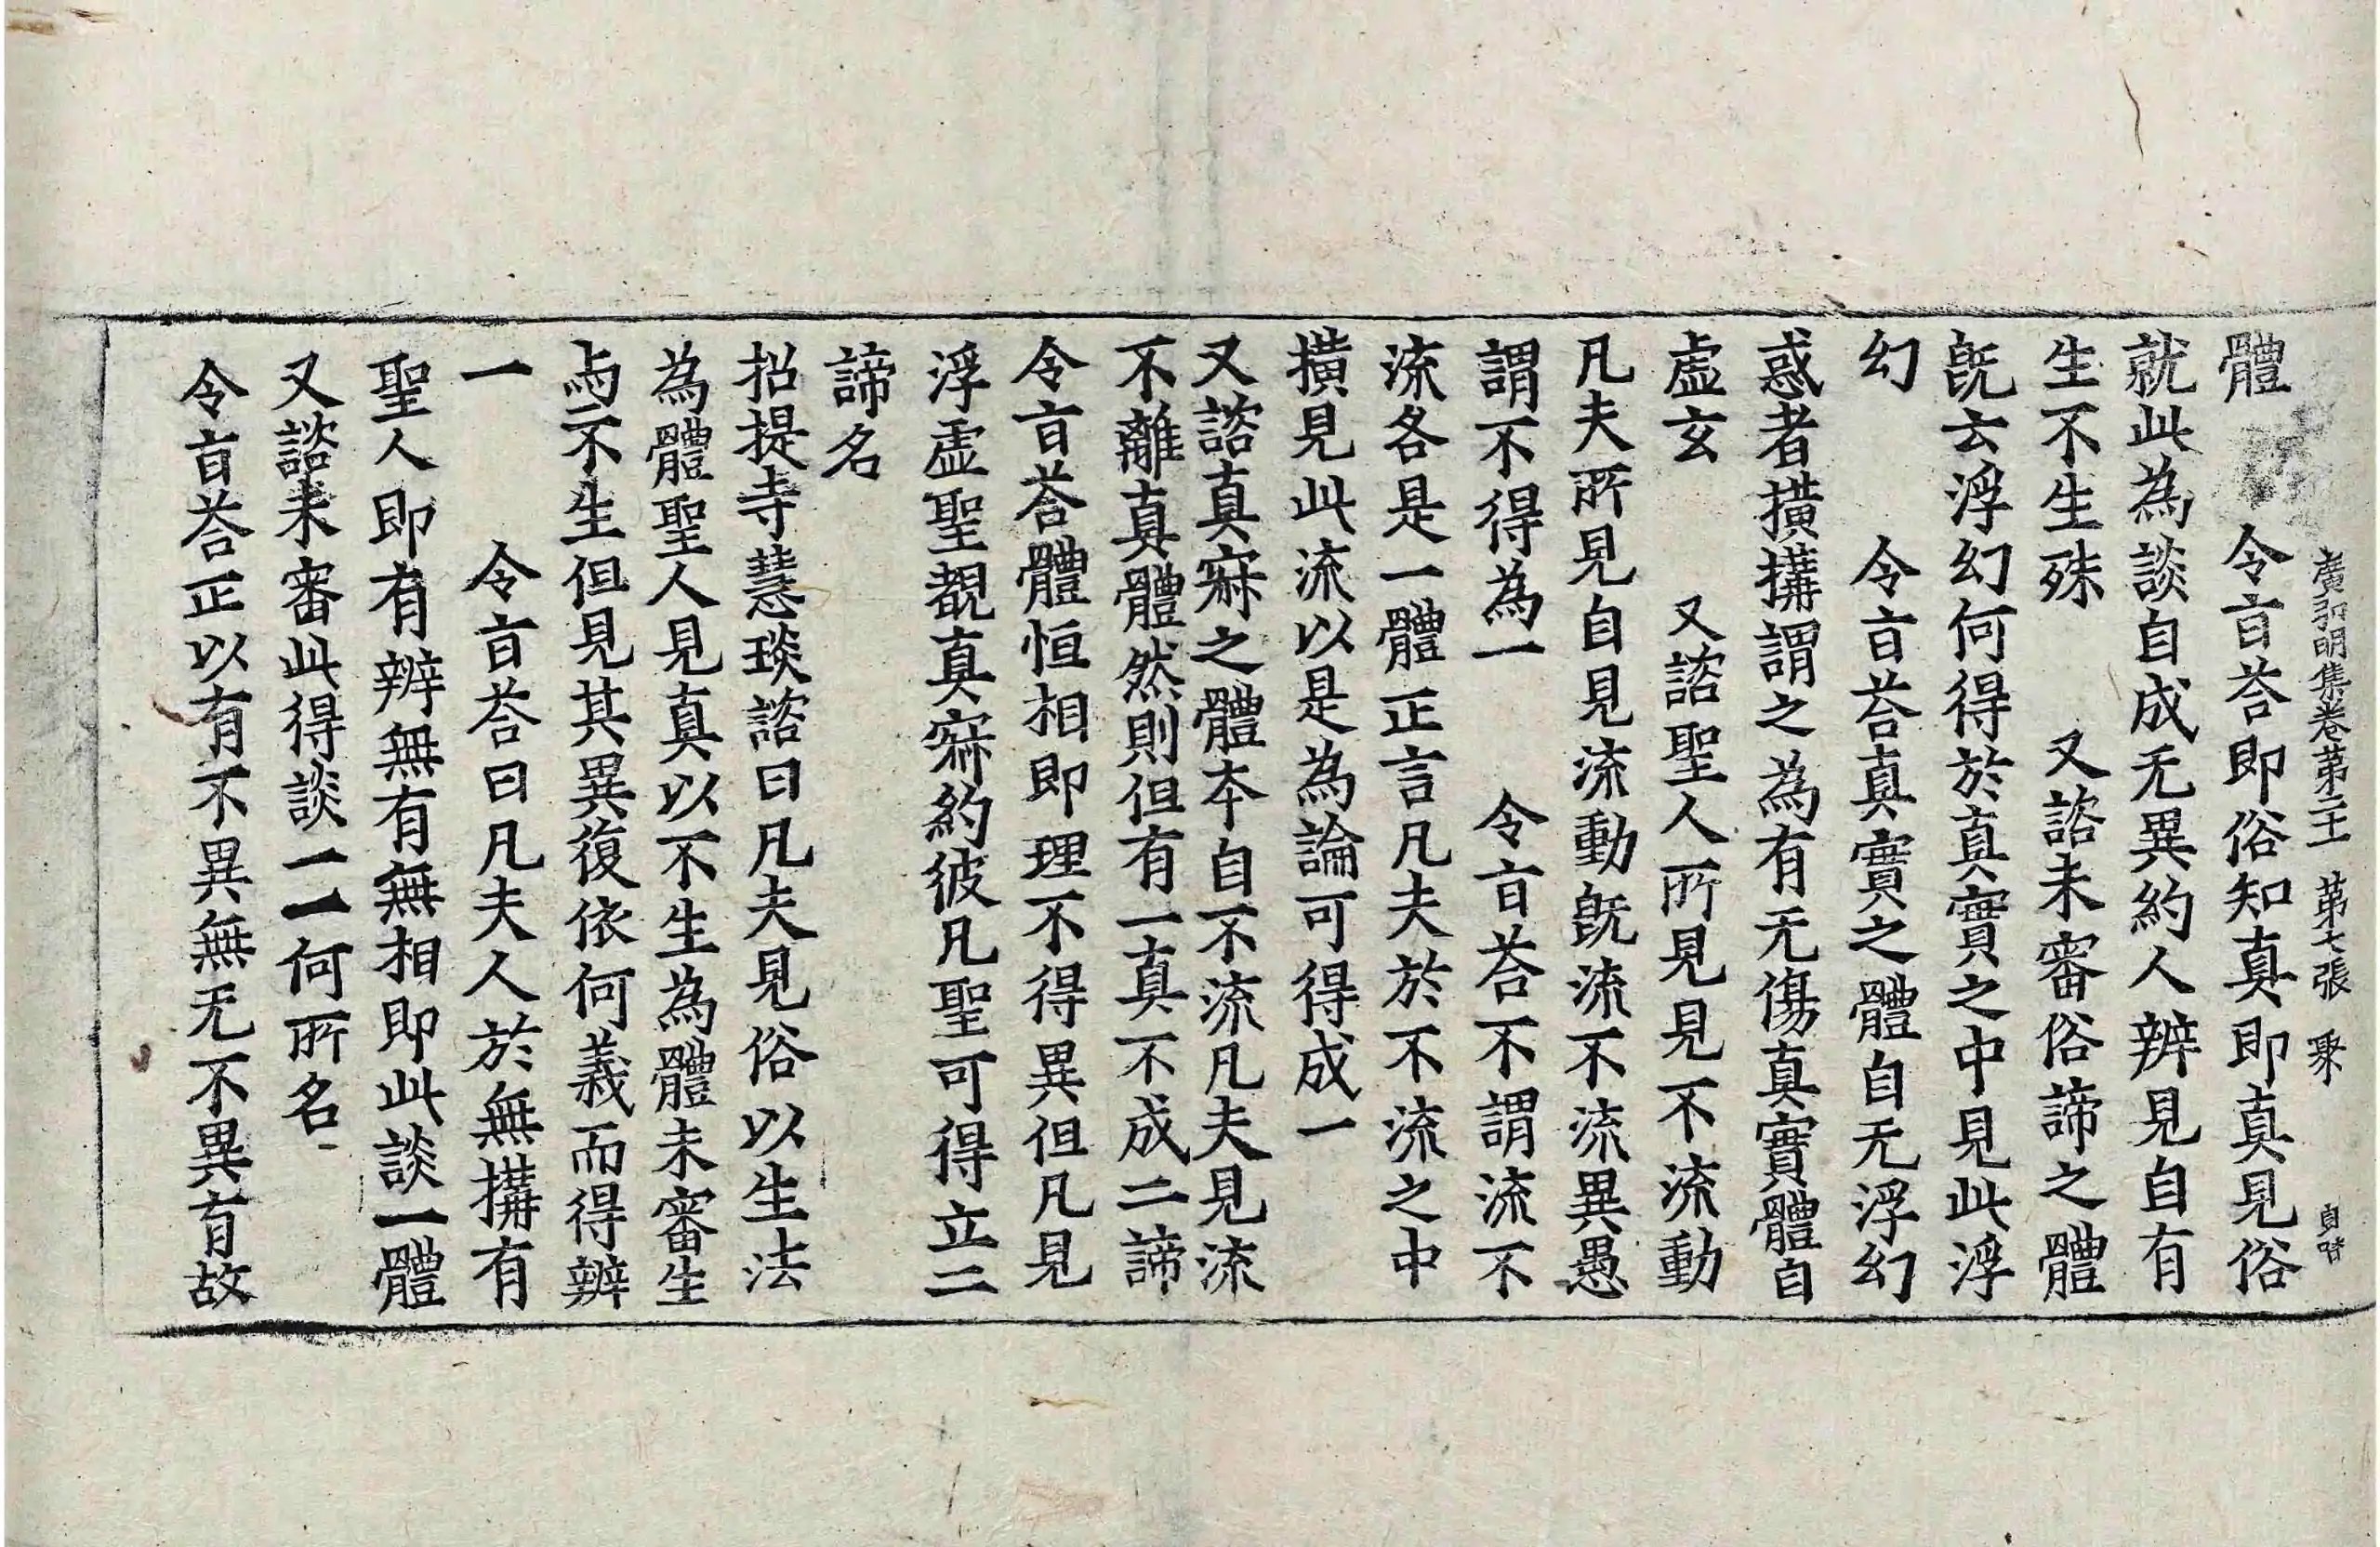 廣弘明集卷第二十一 第七張 聚 貞哲
體 令旨荅即俗知真即真見俗
就此為談自成无異約人辨見自有
生不生殊 又諮未審俗諦之體
旣云浮幻何得於真實之中見此浮
幻 令旨荅真實之體自无浮幻
惑者撗搆謂之為有无傷真實體自
虛玄 又諮聖人所見見不流動
凡夫所見自見流動旣流不流異愚
謂不得為一 令旨荅不謂流不
流各是一體正言凡夫於不流之中
撗見此流以是為論可得成一
又諮真寂之體本自不流凡夫見流
不離真體然則但有一真不成二諦
令旨荅體恒相即理不得異但凡見
浮虛聖覩真寂約彼凡聖可得立二
諦名
招提寺慧琰諮曰凡夫見俗以生法
為體聖人見真以不生為體未審生
与不生但見其異復依何義而得辨
一 令旨荅曰凡夫人於無搆有
聖人即有辨無有無相即此談一體
又諮未審此得談一一何所名
令旨荅正以有不異無无不異有故